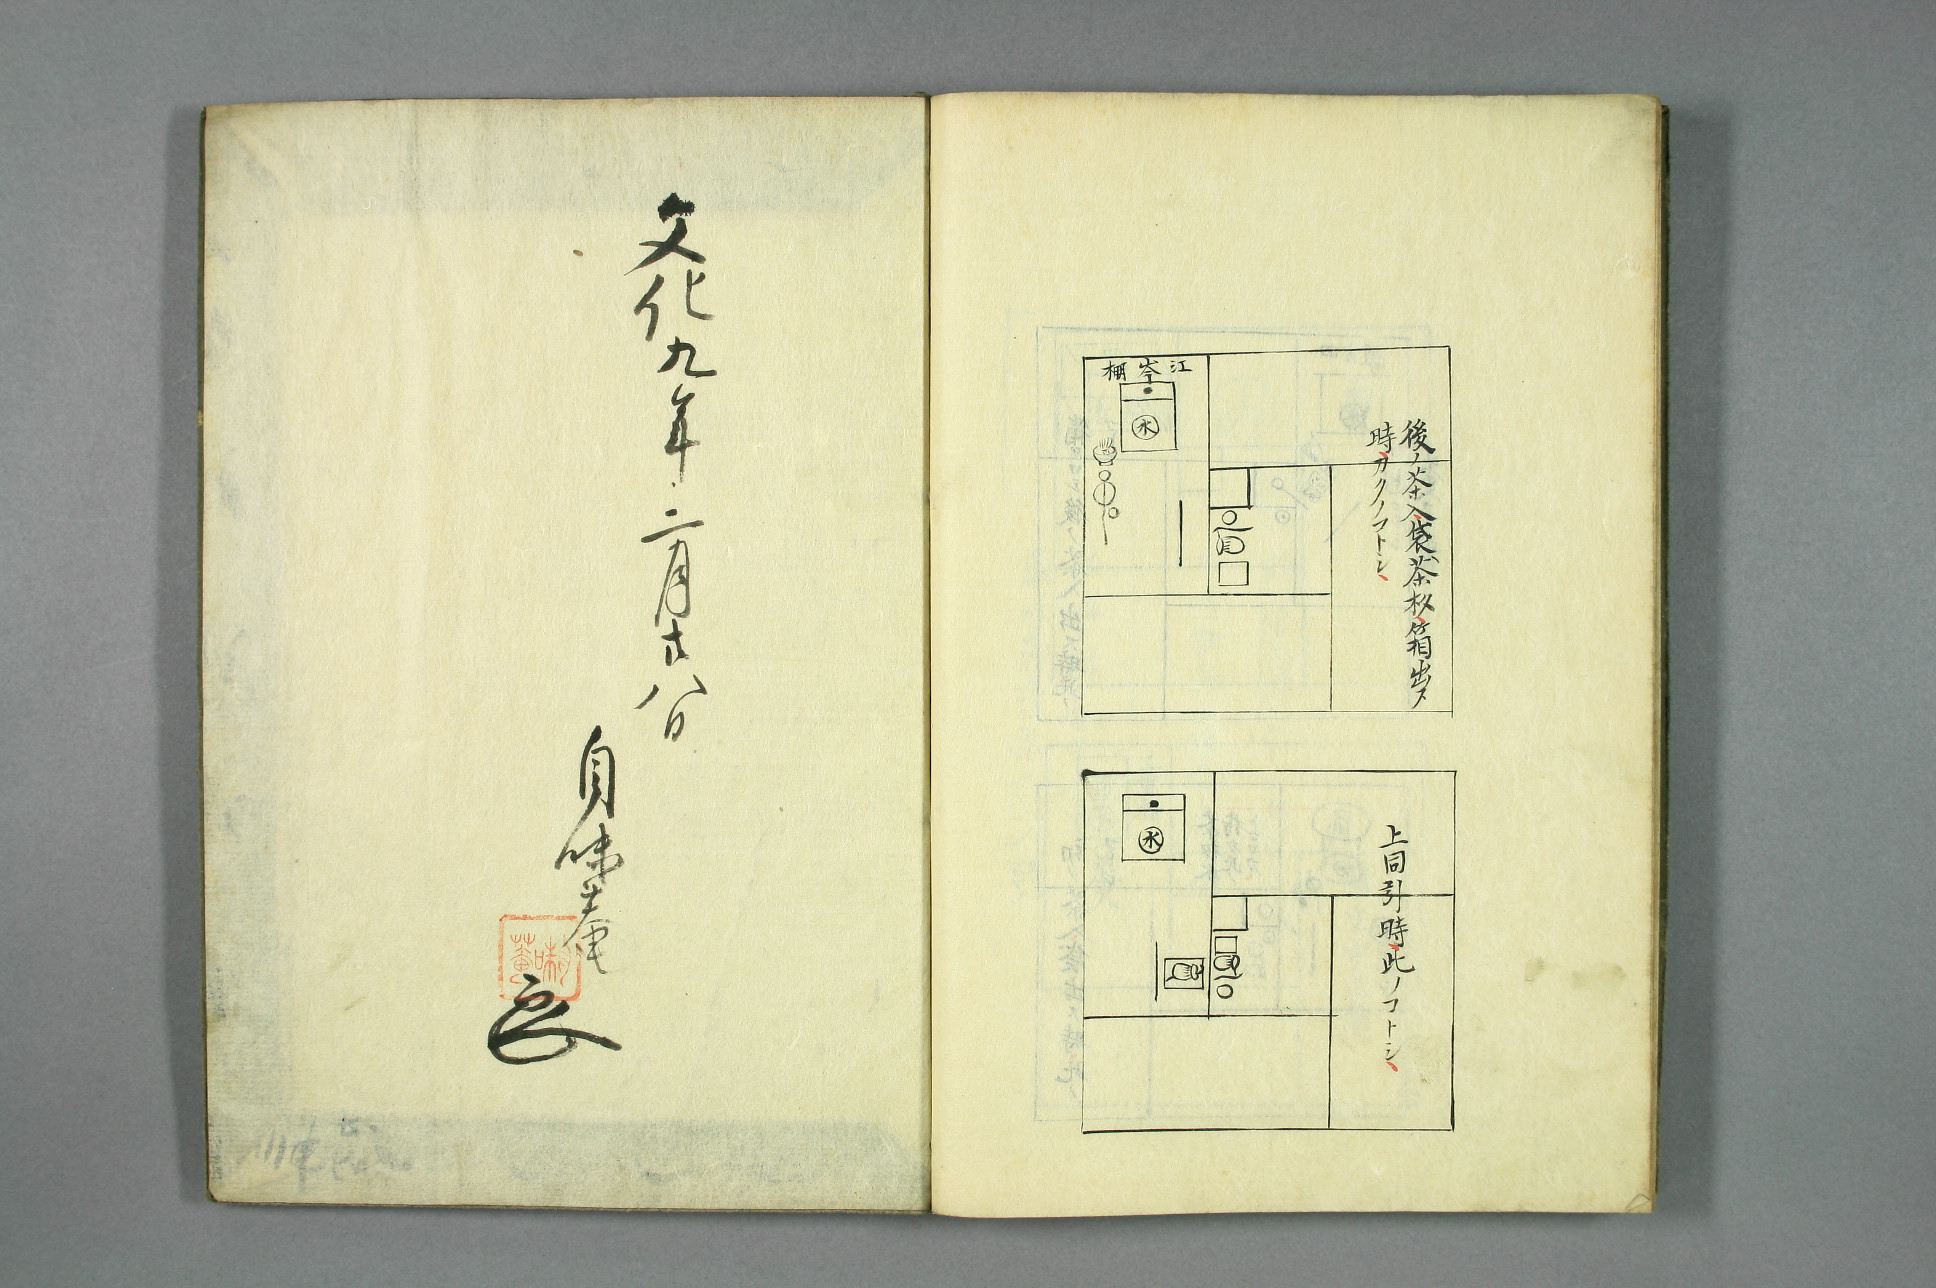 後ノ茶入袋茶杓箱出ス
時カクノコトシ
江岑棚
水
上同引時此ノコトシ
水
文化九年二月廿八日
自味菴
味
菴